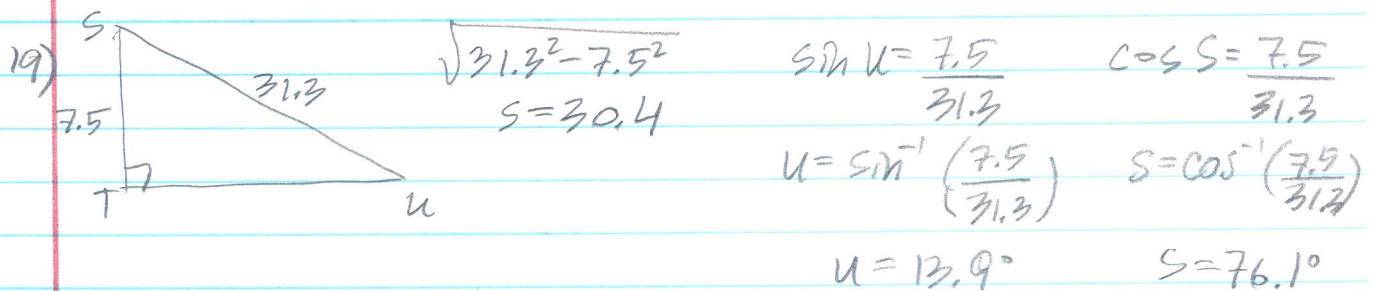 19)
S
31.3
7.5
T
U
√31.3² - 7.5²
s = 30.4
sin U = 7.5/31.3
U = sin⁻¹ (7.5/31.3)
U = 13.9°
cos S = 7.5/31.3
S = cos⁻¹ (7.5/31.3)
S = 76.1°